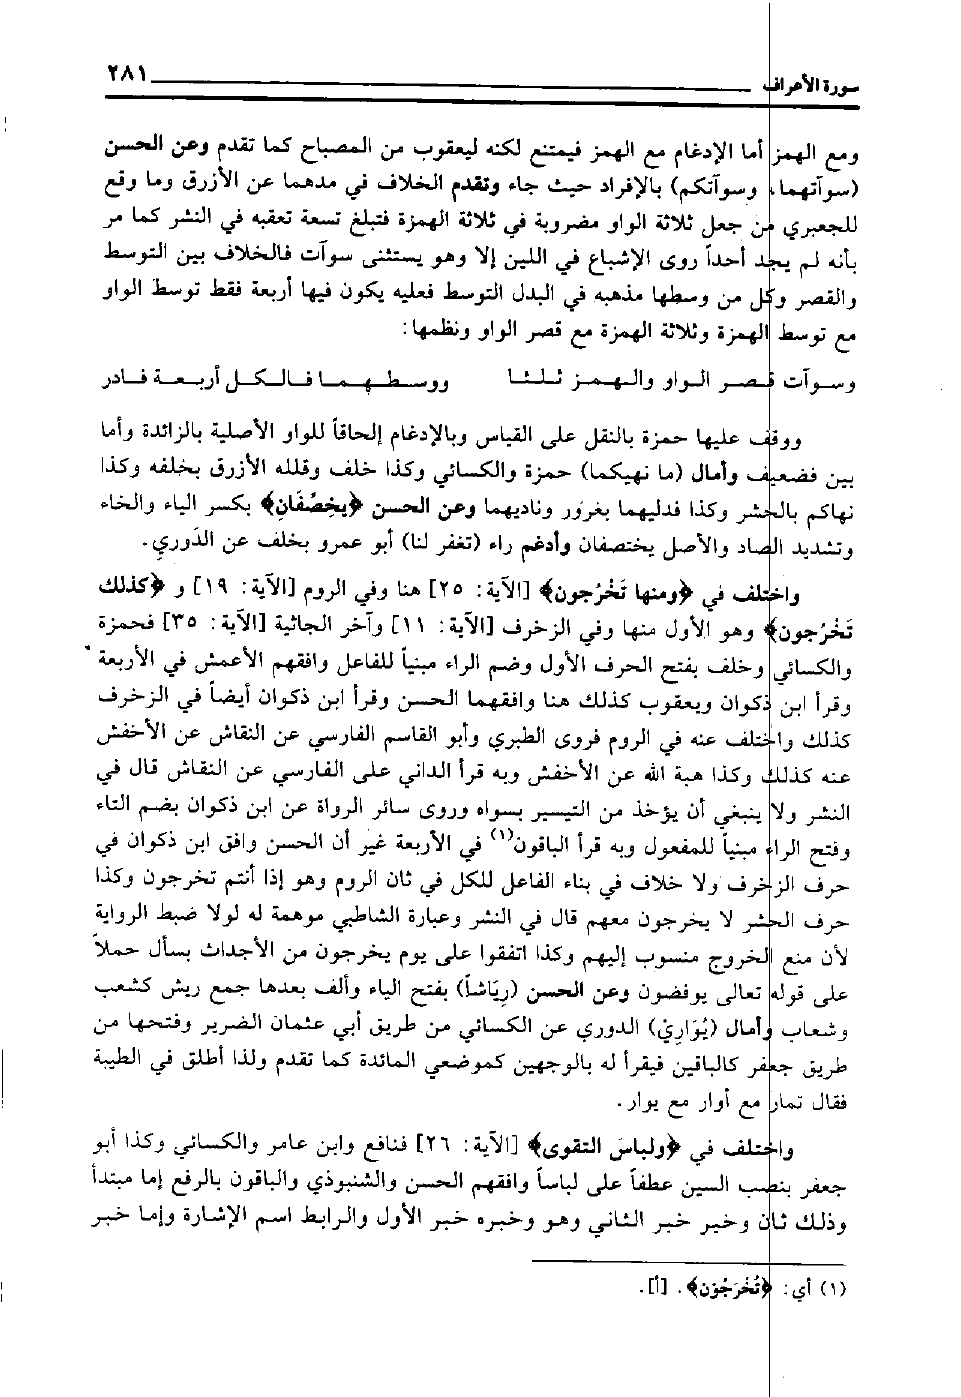 سورة الأعراف ٢٨١
ومع الهمز أما الإدغام مع الهمز فيمتنع لكنه ليعقوب من المصباح كما تقدم وعن الحسن
(سوآتهما، وسوآتكم) بالإفراد حيث جاء وتقدم الخلاف في مدهما عن الأزرق وما وقع
للجعبري من جعل ثلاثة الواو مضروبة في ثلاثة الهمزة فتبلغ تسعة تعقبه في النشر كما مر
بأنه لم يجد أحداً روى الإشباع في اللين إلا وهو يستثنى سوآت فالخلاف بين التوسط
والقصر وكل من وسطها مذهبه في البدل التوسط فعليه يكون فيها أربعة فقط توسط الواو
مع توسط الهمزة وثلاثة الهمزة مع قصر الواو ونظمها:
وسوآت قصر الواو والهمز ثلثا ووسطهما فالكل أربعة فادر
ووقف عليها حمزة بالنقل على القياس وبالإدغام إلحاقاً للواو الأصلية بالزائدة وأما
بين فضعيف وأمال (ما نهيكما) حمزة والكسائي وكذا خلف وقلله الأزرق بخلفه وكذا
نهاكم بالحشر وكذا فدليهما بغرور وناديهما وعن الحسن ﴿يخِصّفَانِ﴾ بكسر الياء والخاء
وتشديد الصاد والأصل يختصفان وأدغم راء (تغفر لنا) أبو عمرو بخلف عن الدَوري.
واختلف في ﴿ومنها تَخْرُجون﴾ [الآية: ٢٥] هنا وفي الروم [الآية: ١٩] و ﴿كذلك
تَخْرُجون﴾ وهو الأول منها وفي الزخرف [الآية: ١١] وآخر الجاثية [الآية: ٣٥] فحمزة
والكسائي وخلف بفتح الحرف الأول وضم الراء مبنياً للفاعل وافقهم الأعمش في الأربعة
وقرأ ابن ذكوان ويعقوب كذلك هنا وافقهما الحسن وقرأ ابن ذكوان أيضاً في الزخرف
كذلك واختلف عنه في الروم فروى الطبري وأبو القاسم الفارسي عن النقاش عن الأخفش
عنه كذلك وكذا هبة الله عن الأخفش وبه قرأ الداني على الفارسي عن النقاش قال في
النشر ولا ينبغي أن يؤخذ من التيسير بسواه وروى سائر الرواة عن ابن ذكوان بضم التاء
وفتح الراء مبنياً للمفعول وبه قرأ الباقون(١) في الأربعة غير أن الحسن وافق ابن ذكوان في
حرف الزخرف ولا خلاف في بناء الفاعل للكل في ثان الروم وهو إذا أنتم تخرجون وكذا
حرف الحشر لا يخرجون معهم قال في النشر وعبارة الشاطبي موهمة له لولا ضبط الرواية
لأن منع الخروج منسوب إليهم وكذا اتفقوا على يوم يخرجون من الأجداث بسأل حملاً
على قوله تعالى يوفضون وعن الحسن (رِيَاشاً) بفتح الياء وألف بعدها جمع ريش كشعب
وشعاب وأمال (يُوَارِيْ) الدوري عن الكسائي من طريق أبي عثمان الضرير وفتحها من
طريق جعفر كالباقين فيقرأ له بالوجهين كموضعي المائدة كما تقدم ولذا أطلق في الطيبة
فقال تمار مع أوار مع يوار.
واختلف في ﴿ولباسَ التقوى﴾ [الآية: ٢٦] فنافع وابن عامر والكسائي وكذا أبو
جعفر بنصب السين عطفاً على لباساً وافقهم الحسن والشنبوذي والباقون بالرفع إما مبتدأ
وذلك ثان وخير خبر الثاني وهو وخبره خبر الأول والرابط اسم الإشارة وإما خبر
(١) أي: ﴿تُخْرَجُوْن﴾. [أ].